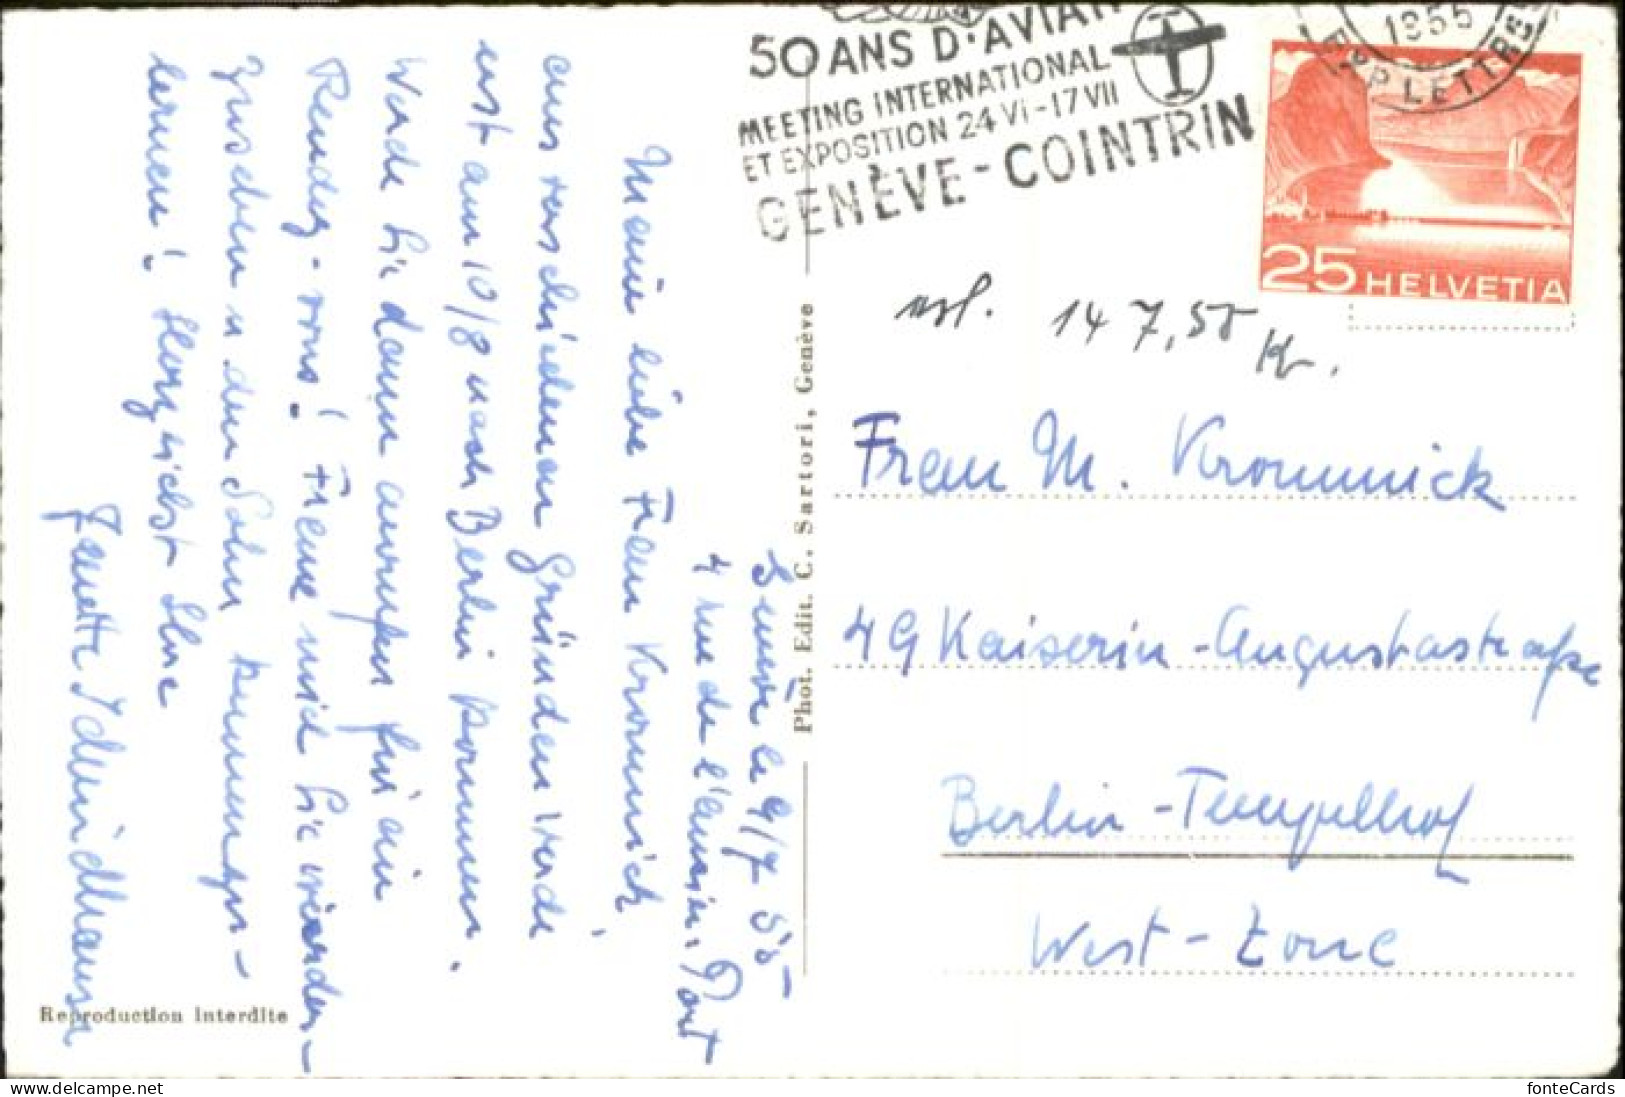 50 ANS D'AVIATI
MEETING INTERNATIONAL
ET EXPOSITION 24 VI-17 VII
GENÈVE-COINTRIN
1955
LETTRES
25 HELVETIA
14 7,55
Kr.
Frau M. Krommick
49 Kaiserin-Augustastraße
Berlin-Tempelhof
West-Zone
Phot. Edit. C. Sartori, Genève
le 9/7 55
4 rue de l'
Meine liebe Frau Krommick
aus verschiedenen Gründen werde
erst am 10/8 nach Berlin kommen.
Werde Sie dann anrufen für ein
Rendez-vous! Freue mich Sie wieder-
zusehen u den Sohn kennenzu-
lernen! Herzlichst Ihre
Reproduction interdite
fonteCards